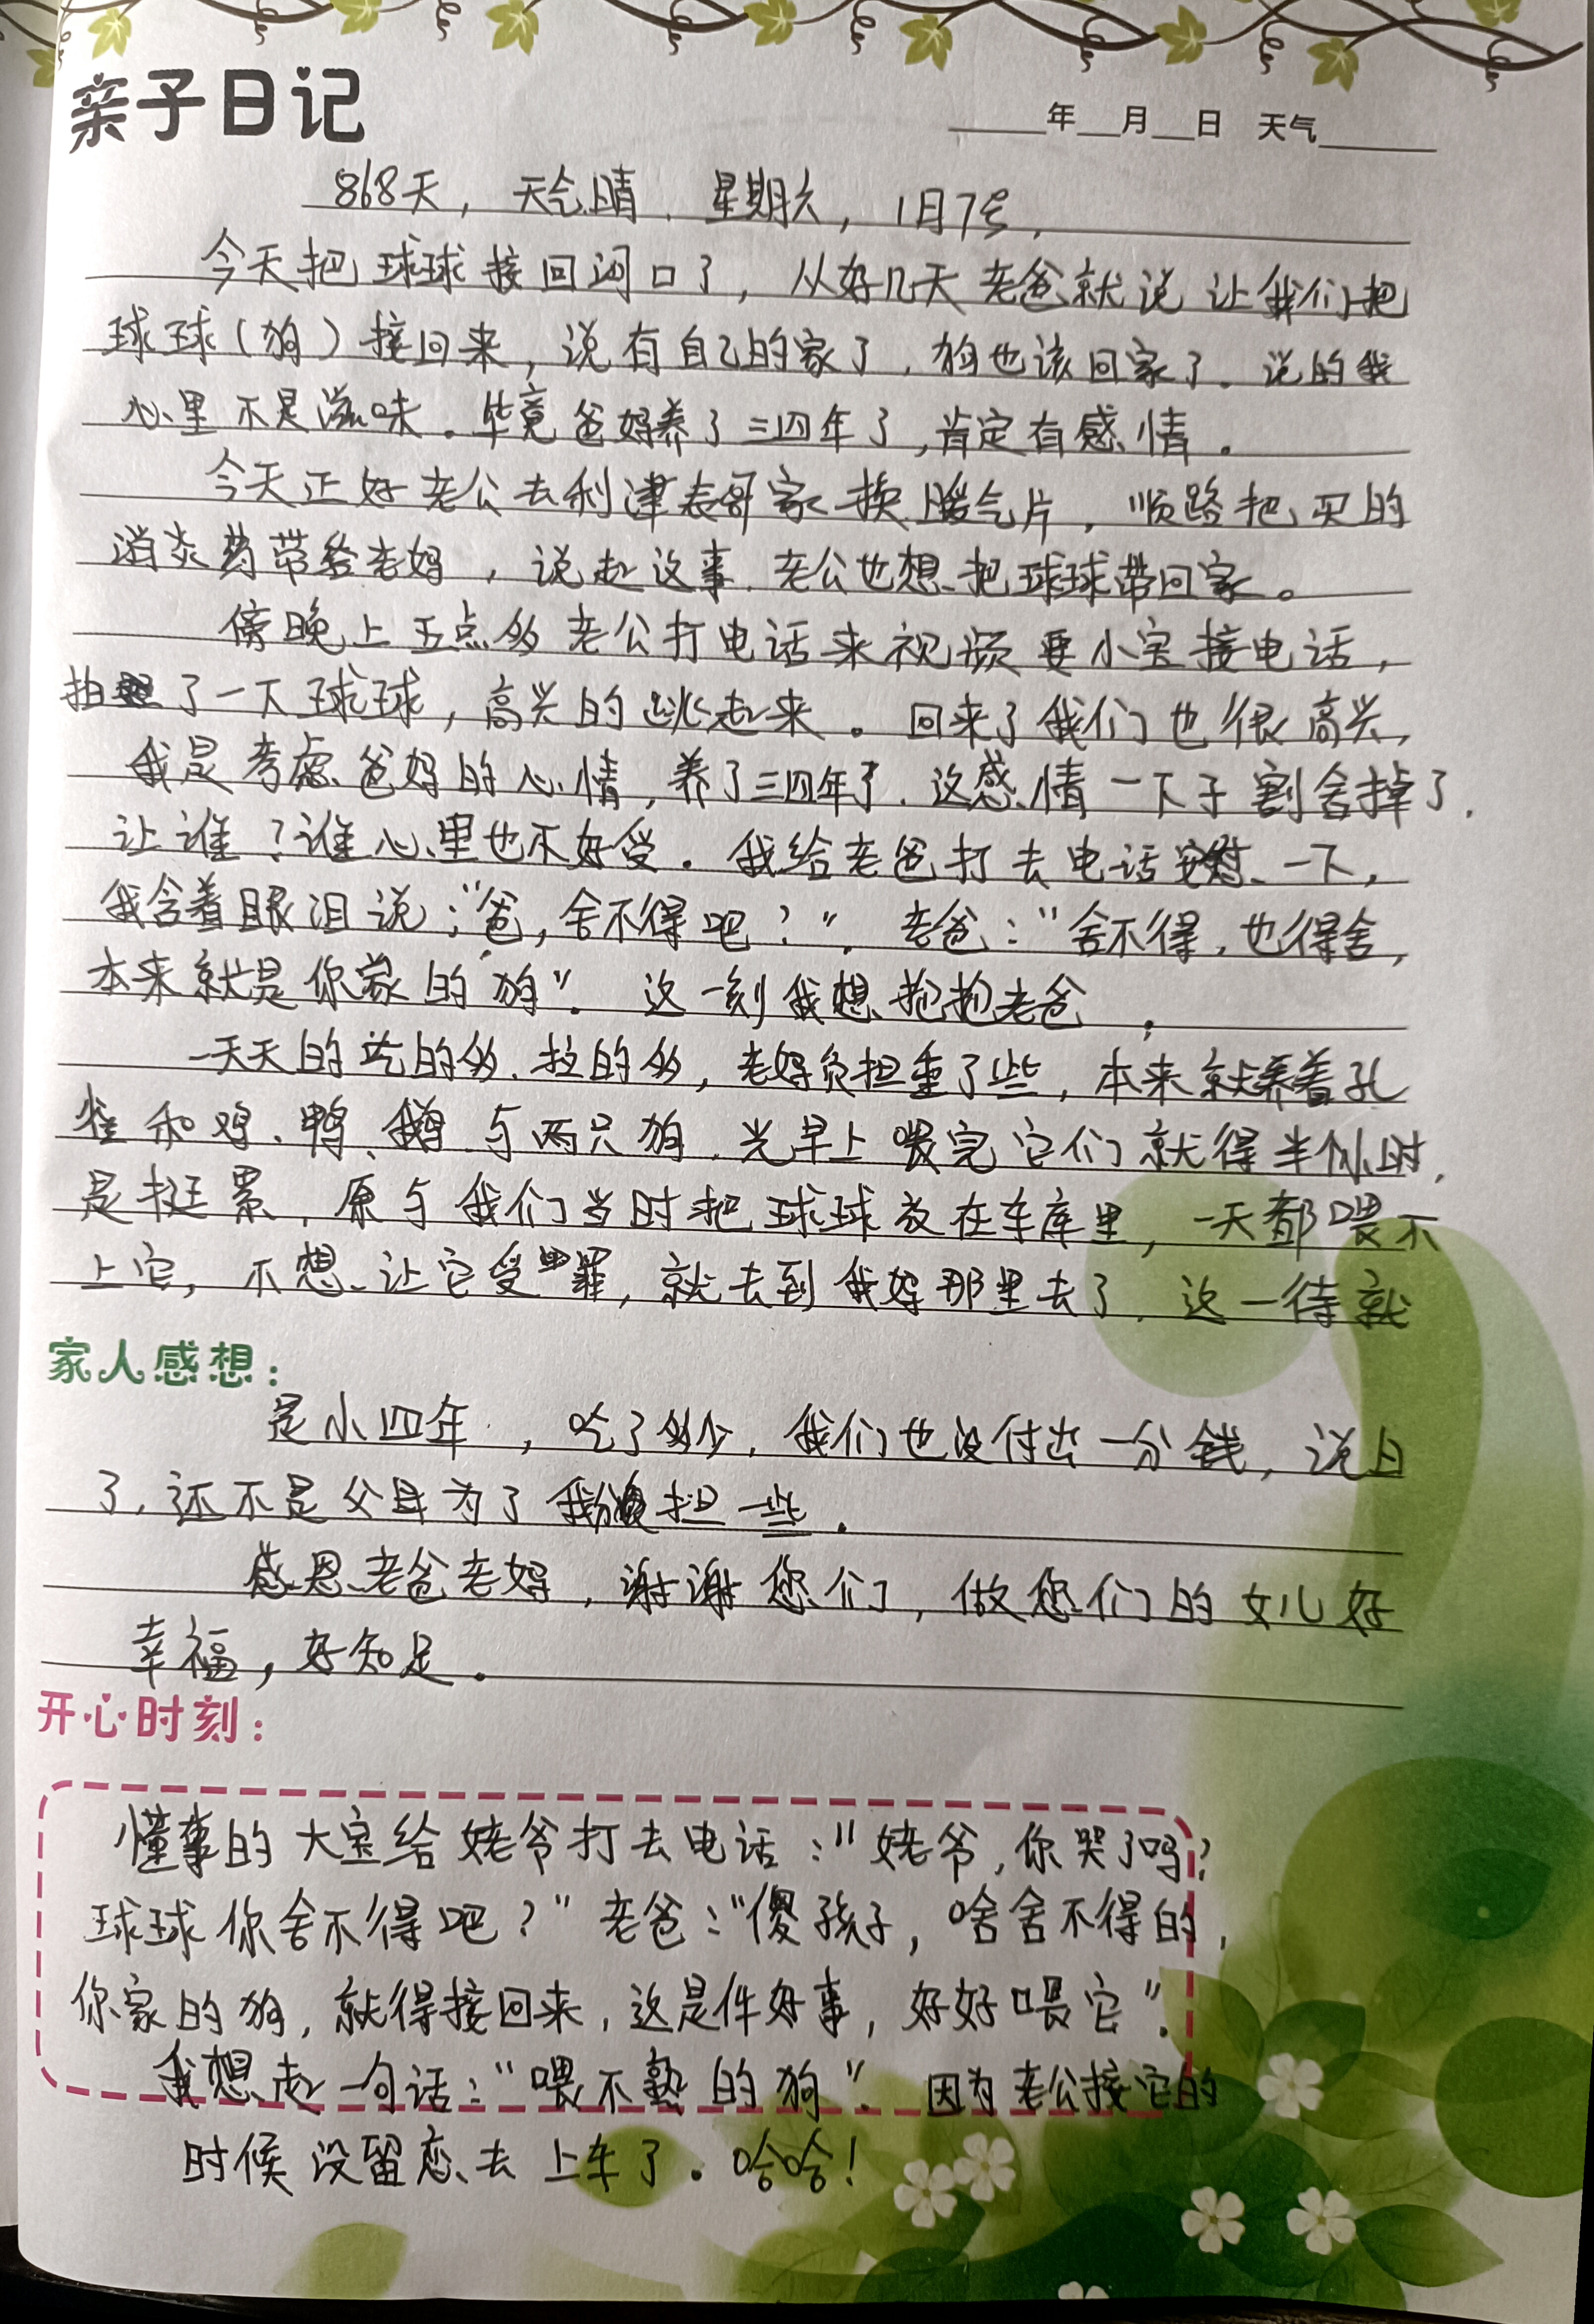 亲子日记
年 月 日 天气
868天，天气晴，星期六，1月7号，
今天把球球接回河口了，从好几天老爸就说让我们把
球球（狗）接回来，说有自己的家了，狗也该回家了。说的我
心里不是滋味。毕竟爸妈养了三四年了，肯定有感情。
今天正好老公去利津表哥家换暖气片，顺路把买的
消炎药带给老妈，说起这事，老公也想把球球带回家。
傍晚上五点多老公打电话来视频要小宝接电话，
拍了一下球球，高兴的跳起来。回来了我们也很高兴，
我是考虑爸妈的心情，养了三四年了，这感情一下子割舍掉了，
让谁？谁心里也不好受。我给老爸打去电话安慰一下，
我含着眼泪说；“爸，舍不得吧？”。老爸：“舍不得，也得舍，
本来就是你家的狗”。这一刻我想抱抱老爸，
一天天的吃的多、拉的多，老妈负担重了些，本来就养着孔
雀和鸡、鸭、鹅与两只狗，光早上喂完它们就得半小时，
是挺累，原与我们当时把球球放在车库里，一天都喂不
上它，不想让它受罪，就去到我妈那里去了，这一待就
家人感想：
是小四年，吃了多少，我们也没付出一分钱，说白
了，还不是父母为了我们负担一些。
感恩老爸老妈，谢谢您们，做您们的女儿好
幸福，好知足。
开心时刻：
懂事的大宝给姥爷打去电话：“姥爷，你哭了吗？
球球你舍不得吧？”老爸：“傻孩子，啥舍不得的，
你家的狗，就得接回来，这是件好事，好好喂它”。
我想起一句话：“喂不熟的狗”。因为老公接它的
时候没留恋去上车了。哈哈！